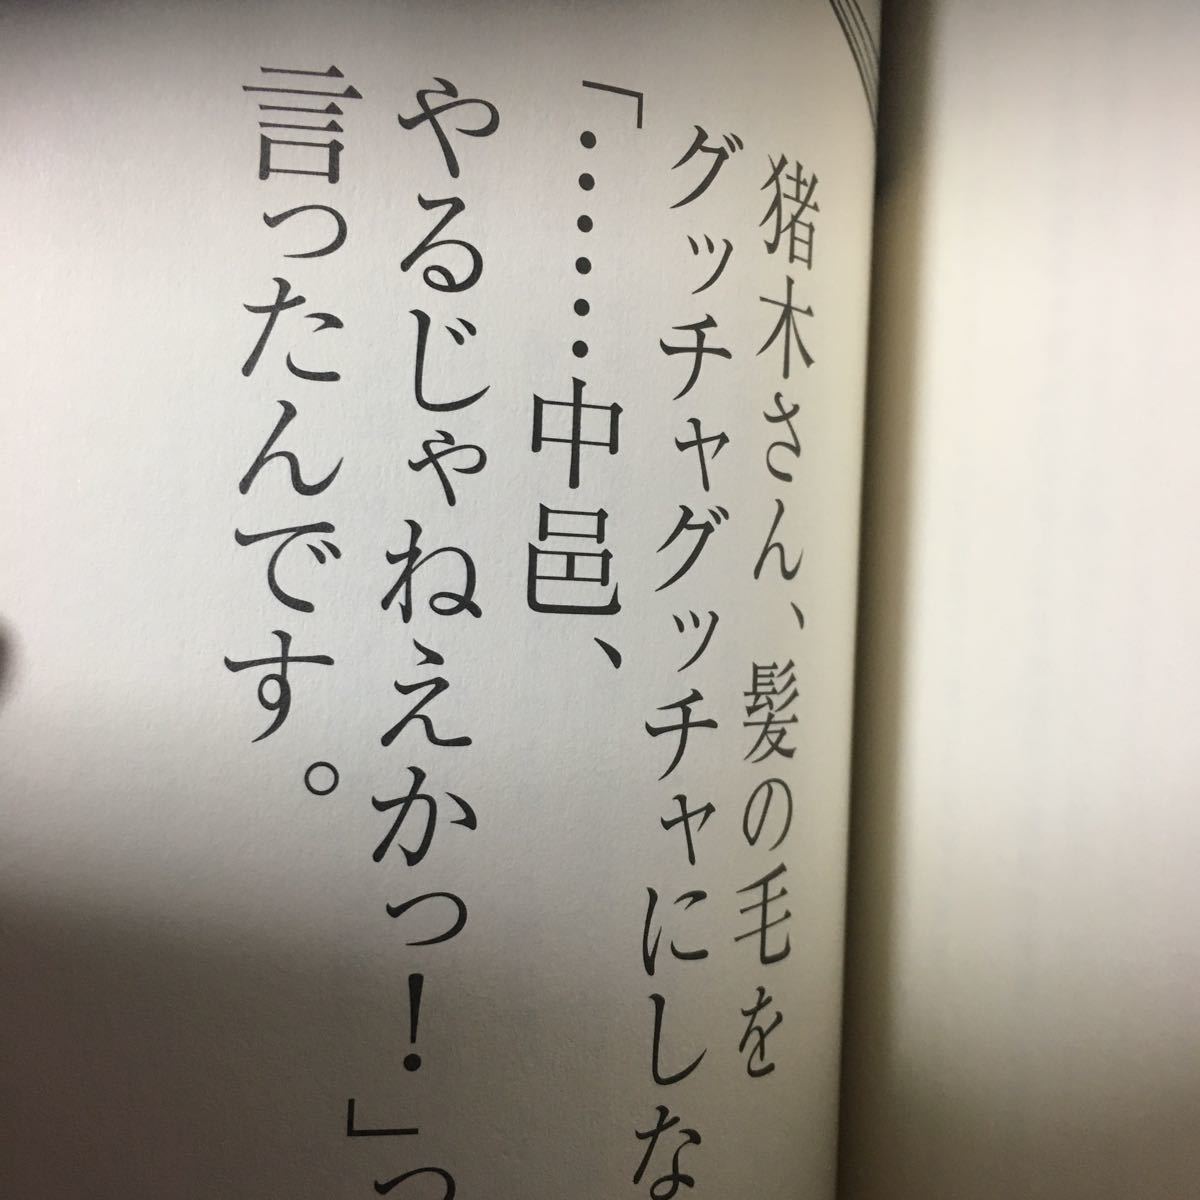 猪木さん、髪の毛を
グッチャグッチャにしな
「……中邑、
やるじゃねえかっ！」っ
言ったんです。